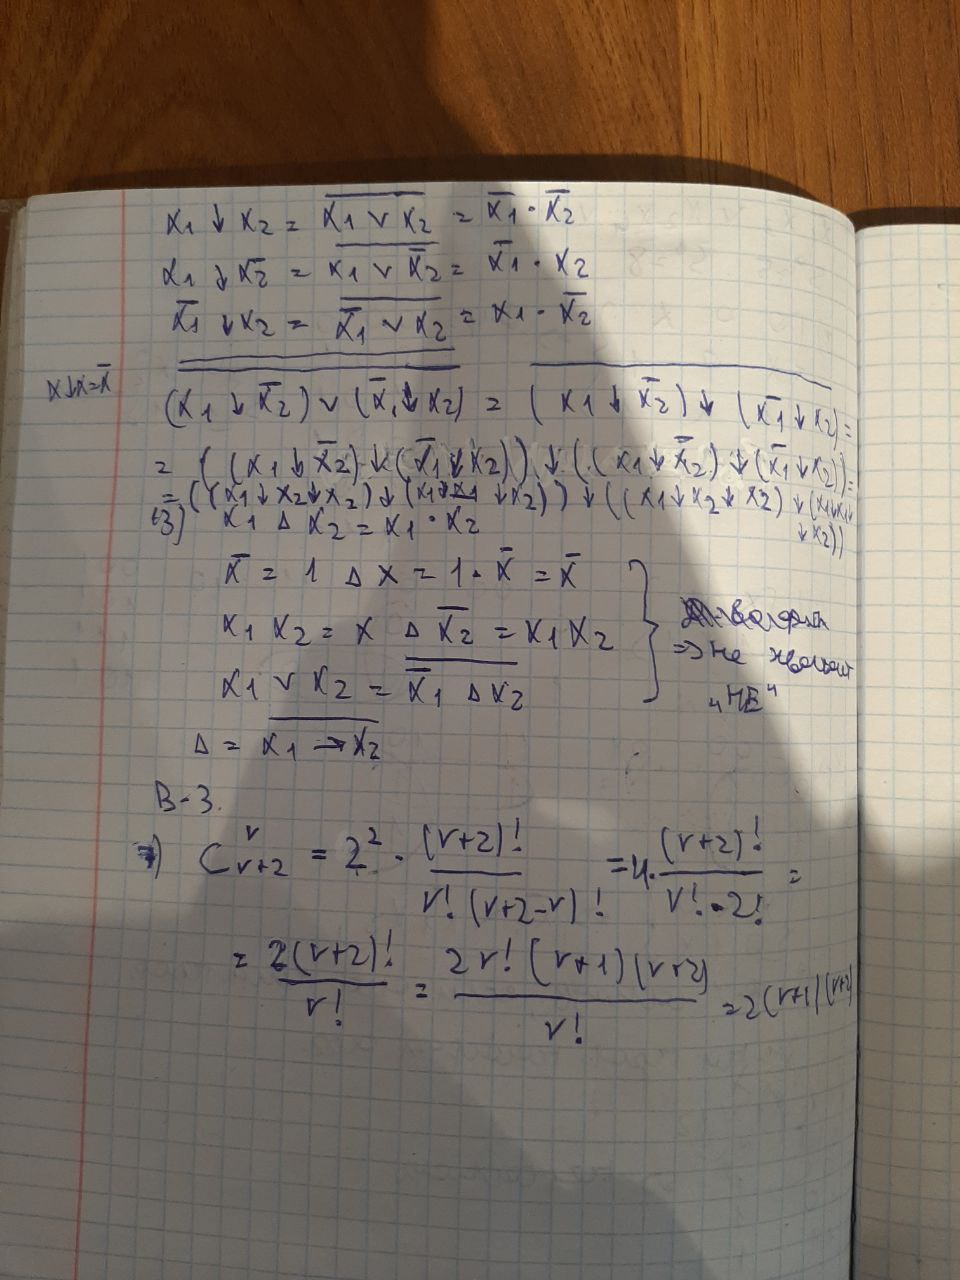 x₁ ↓ x₂ = \overline{x₁ ∨ x₂} = x̄₁ · x̄₂
x₁ ↓ x̄₂ = \overline{x₁ ∨ x̄₂} = x̄₁ · x₂
x̄₁ ↓ x₂ = \overline{x̄₁ ∨ x₂} = x₁ · x̄₂
x↓x=x̄
\overline{\overline{(x₁ ↓ x̄₂) ∨ (x̄₁ ↓ x₂)}} = \overline{(x₁ ↓ x̄₂) ↓ (x̄₁ ↓ x₂)} =
= ((x₁ ↓ x̄₂) ↓ (x̄₁ ↓ x₂)) ↓ ((x₁ ↓ x̄₂) ↓ (x̄₁ ↓ x₂)) =
= ((x₁ ↓ x₂ ↓ x₂) ↓ (x₁ ↓ x₁ ↓ x₂)) ↓ ((x₁ ↓ x₂ ↓ x₂) ↓ (x₁ ↓ x₁ ↓
↓ x₂))
3) x₁ Δ x₂ = x₁ · x̄₂
x̄ = 1 Δ x = 1 · x̄ = x̄
x₁ x₂ = x Δ x̄₂ = x₁ x₂
x₁ ∨ x₂ = \overline{x̄₁ Δ x₂}
⇒ не хватает
"НЕ"
Δ = \overline{x₁ → x₂}
В-3.
) C^r_{r+2} = 2² · (r+2)! / r! (r+2-r)! = 4 · (r+2)! / r! · 2! =
= 2(r+2)! / r! = 2 r! (r+1)(r+2) / r! = 2(r+1)(r+2)